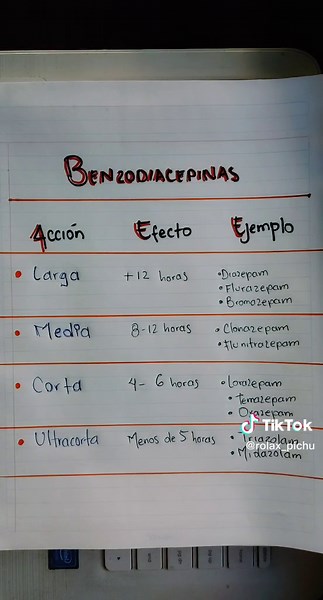 BENZODIACEPINAS
Acción Efecto Ejemplo
• Larga +12 horas •Diazepam
•Flurazepam
•Bromazepam
• Media 8-12 horas •Clonazepam
•flunitrazepam
• Corta 4-6 horas •Lorazepam
•Temazepam
•Oxazepam
• Ultracorta Menos de 5 horas •Triazolam
•Midazolam
TikTok
@rolax_pichu